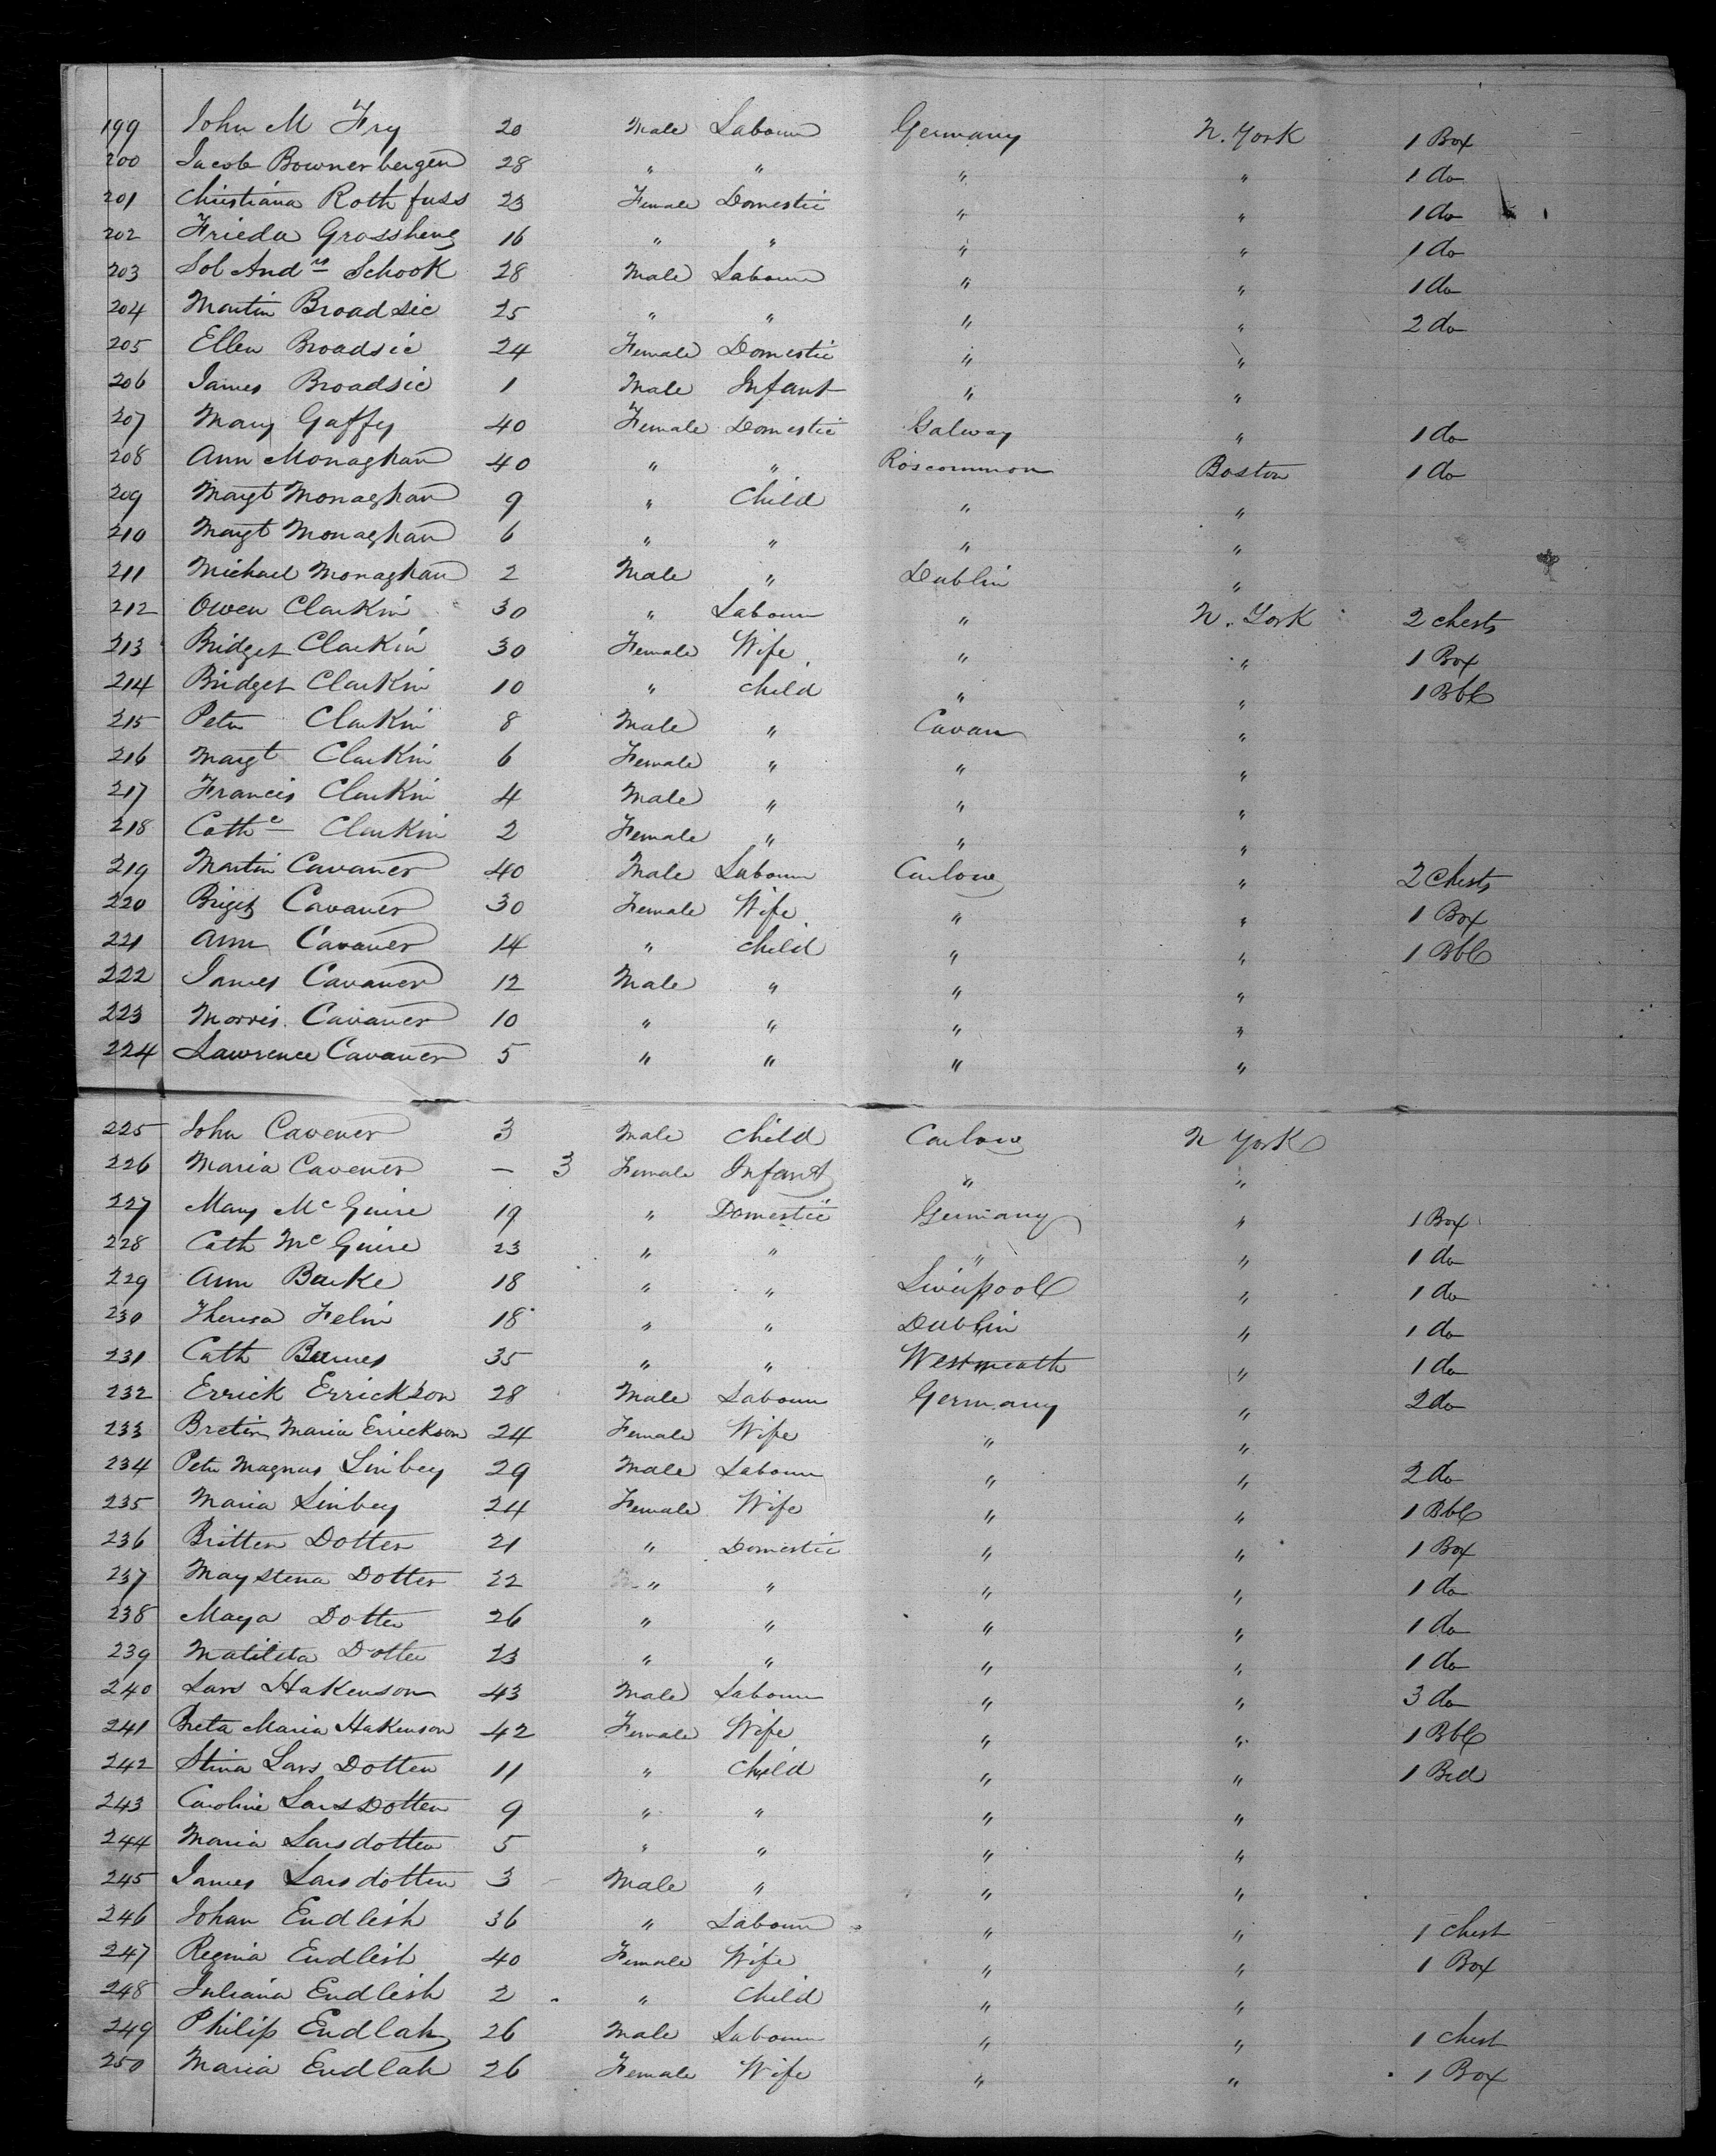 199 John M Fry 20 Male Labourer Germany N. York 1 Box
200 Jacob Bownerbergen 28 " " " " 1 do
201 Christiana Rothfuss 23 Female Domestic " " 1 do
202 Frieda Grossheng 16 " " " " 1 do
203 Sol Andrs Schook 28 Male Labourer " " 1 do
204 Martin Broadsic 25 " " " " 2 do
205 Ellen Broadsic 24 Female Domestic " "
206 James Broadsic 1 Male Infant " "
207 Mary Gaffy 40 Female Domestic Galway " 1 do
208 Ann Monaghan 40 " " Roscommon Boston 1 do
209 Margt Monaghan 9 " Child " "
210 Margt Monaghan 6 " " " "
211 Michael Monaghan 2 Male " Dublin "
212 Owen Clarkin 30 " Labourer " N. York 2 Chests
213 Bridget Clarkin 30 Female Wife " " 1 Box
214 Bridget Clarkin 10 " Child " " 1 Bbl
215 Peter Clarkin 8 Male " Cavan "
216 Margt Clarkin 6 Female " " "
217 Francis Clarkin 4 Male " " "
218 Cathe Clarkin 2 Female " " "
219 Martin Cavaner 40 Male Labourer Carlow " 2 Chests
220 Briget Cavaner 30 Female Wife " " 1 Box
221 Ann Cavaner 14 " Child " " 1 Bbl
222 James Cavaner 12 Male " " "
223 Morris Cavaner 10 " " " "
224 Lawrence Cavaner 5 " " " "
225 John Cavener 3 Male Child Carlow N York
226 Maria Cavener — 3 Female Infant " "
227 Mary McGuire 19 " Domestic Germany " 1 Box
228 Cath McGuire 23 " " " " 1 do
229 Ann Burke 18 " " Liverpool " 1 do
230 Theresa Felin 18 " " Dublin " 1 do
231 Cath Burnes 35 " " Westmeath " 1 do
232 Errick Errickson 28 Male Labourer Germany " 2 do
233 Bretin Maria Errickson 24 Female Wife " "
234 Peter Magnus Linbey 29 Male Labourer " " 2 do
235 Maria Linbey 24 Female Wife " " 1 Bbl
236 Britten Dotter 21 " Domestic " " 1 Box
237 Maystena Dotter 22 " " " " 1 do
238 Maya Dotter 26 " " " " 1 do
239 Matilda Dotter 23 " " " " 1 do
240 Lars Hakenson 43 Male Labourer " " 3 do
241 Breta Maria Hakenson 42 Female Wife " " 1 Bbl
242 Stina Lars Dotter 11 " Child " " 1 Bed
243 Caroline LarsDotter 9 " " " "
244 Maria Larsdotter 5 " " " "
245 James Larsdotter 3 Male " " "
246 Johan Endlish 36 " Labourer " " 1 Chest
247 Regina Endlish 40 Female Wife " " 1 Box
248 Juliana Endlish 2 " Child " "
249 Philip Endlah 26 Male Labourer " " 1 Chest
250 Maria Endlah 26 Female Wife " " 1 Box